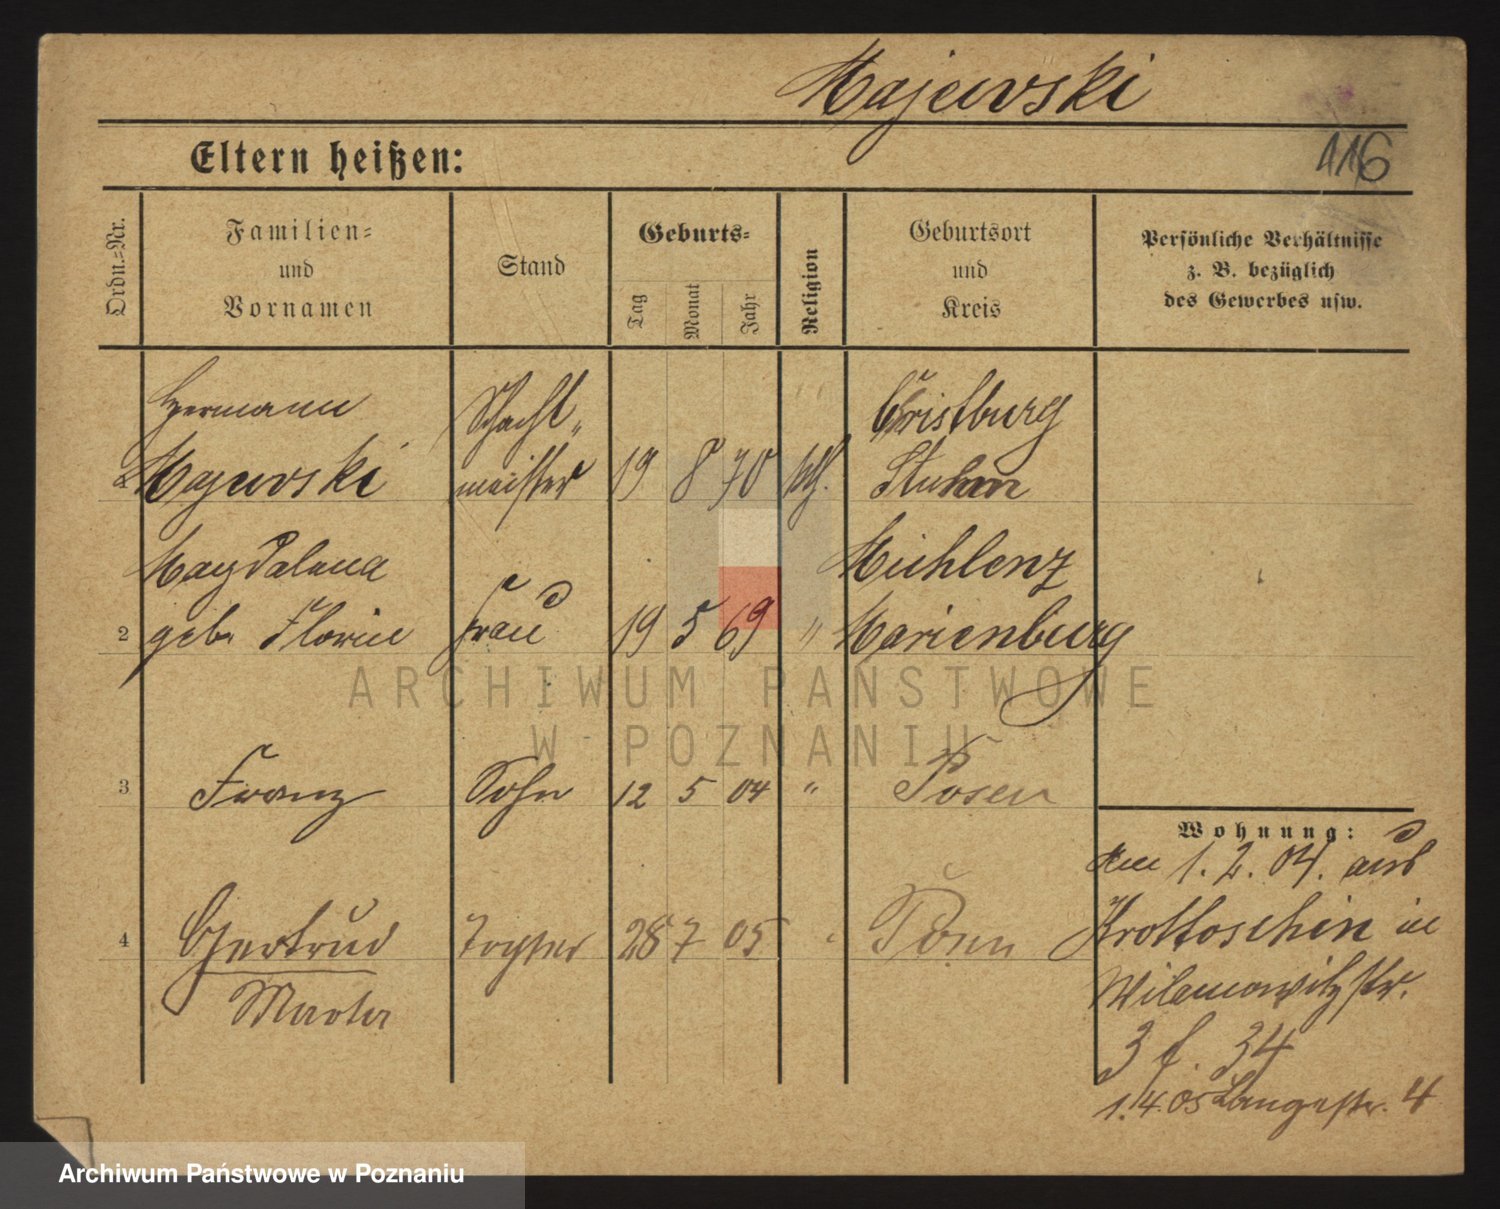 Majewski
116
Eltern heißen:
Ordn.-Nr.
Familien- und Vornamen
Stand
Geburts-
Tag
Monat
Jahr
Religion
Geburtsort und Kreis
Persönliche Verhältnisse
z. B. bezüglich
des Gewerbes usw.
Hermann Schacht„ Cristburg
1 Majewski meister 19 8 70 kth. Stuhm
Magdalena Mühlenz
2 geb. Florin Frau 19 5 69 " Marienburg
3 Franz Sohn 12 5 04 " Posen
Wohnung:
Am 1. 2. 04. aus
4 Gertrud Tochter 28 7 05 " Posen
Krottoschin in
Martha
Wilamowitzstr.
3 f. 34
1.4.05 Langestr. 4
ARCHIWUM PAŃSTWOWE
W POZNANIU
Archiwum Państwowe w Poznaniu